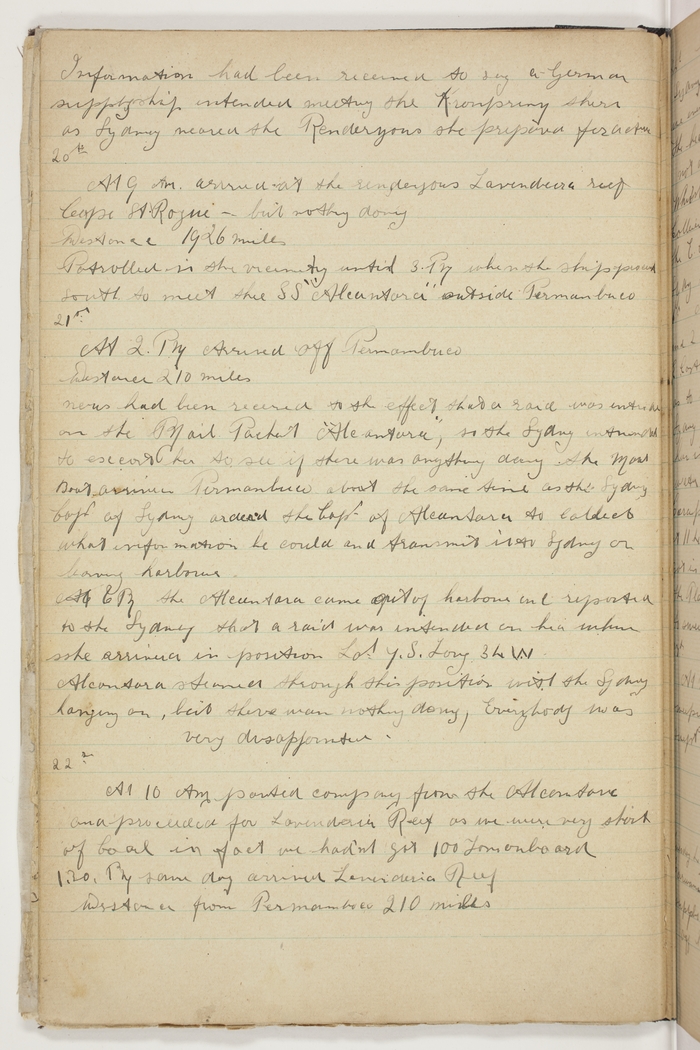 Information had been received to say a German
supplyship intended meeting the Kronprinz there
as Sydney neared the Rendezvous she prepared for action
20th
At 9 Am. arrived at the rendezvous Lavendeira reef
Cape St Roque - but nothg doing
Distance 1926 miles
Patrolled in the vicinity until 3.PM when the ship proceed
South to meet the SS "Alcantara" outside Permanbuco
21st
At 2. PM Arrived off Pernambuco
Distance 210 miles
news had been received to the effect that a raid was intended
on the Mail Packet "Alcantara", so the Sydney intended
to escort her to see if there was anything doing. the Mail
Boat arrived Permanbuco about the same time as the Sydney
Capt of Sydney ordered the Capt of Alcantara to Collect
what information he could and transmit it to Sydney on
leaving harbour.
At 6 PM the Alcantara came out of harbour and reported
to the Sydney that a raid was intended on her when
she arrived in position Lat 7.S. Long 34 W
Alcantara steamed through this position with the Sydney
hanging on, but there was nothg doing, Everybody was
very disappointed.
22nd
At 10 Am parted company from the Alcantara
and proceeded for Lavenderia Reef as we were very short
of Coal in fact we hadn't got 100 Tons on board
1.20. PM same day arrived Lavenderia Reef
Distance from Permambuco 210 miles